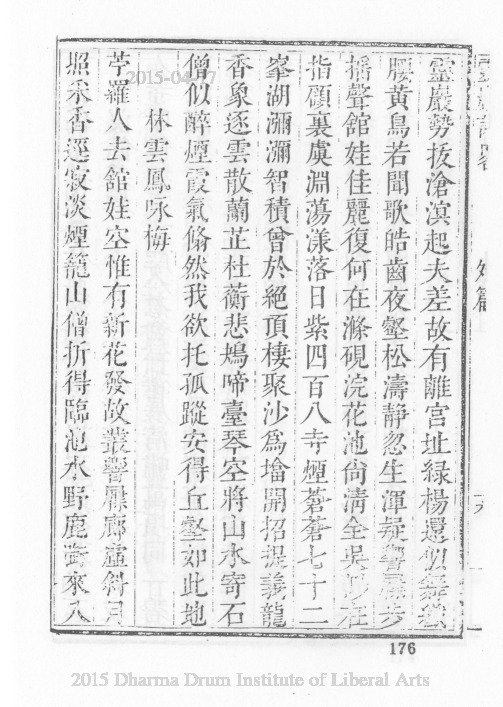 靈巖勢拔滄溟起夫差故有離宮址綠楊還似舞
腰黃鳥若聞歌皓齒夜壑松濤靜忽生渾疑響屧步
搖聲舘娃佳麗復何在滌硯浣花池尙清全吳
指顧裏虞淵蕩漾落日紫四百八寺煙蒼蒼七十二
峯湖瀰瀰智積曾於絕頂棲聚沙爲墖開招提義龍
香象逐雲散蘭芷杜蘅悲鴂啼臺琴空將山水寄石
僧似醉煙霞氣翛然我欲托孤蹤安得丘壑如此地
林雲鳳咏梅
苧羅人去舘娃空惟有新花發故叢響屧廊虛斜月
照采香逕寂淡煙籠山僧折得臨池水野鹿來入
176
2015-04-17
2015 Dharma Drum Institute of Liberal Arts